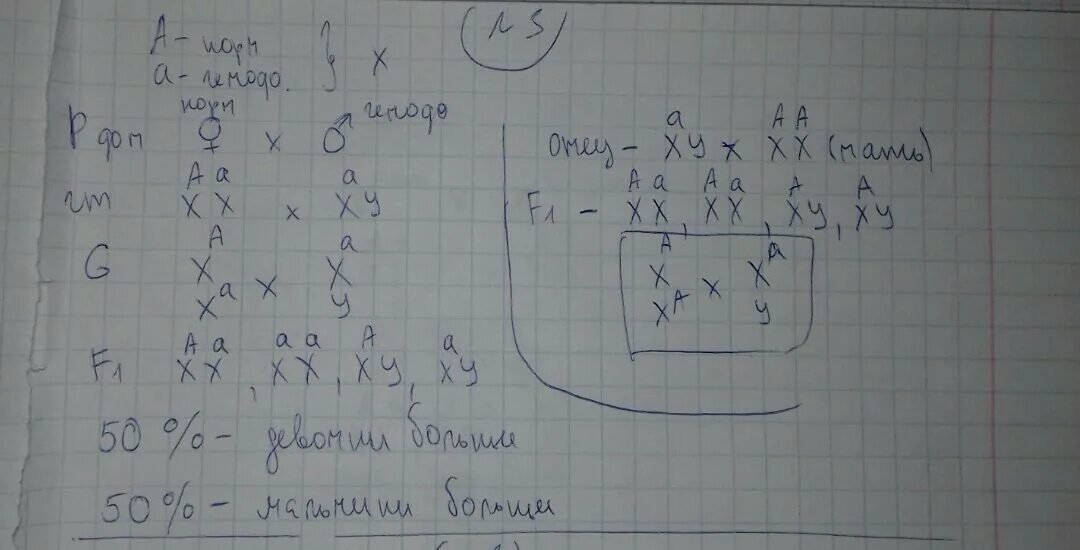 №5
А - норм
а - гемофо. } X
норм гемофо
P фен ♀ x ♂
гт X^A X^a x X^a У
G X^A X^a x X^a У
F1 X^A X^a, X^a X^a, X^A У, X^a У
50 % - девочки больные
50 % - мальчики больные
Отец - X^a У x X^A X^A (мать)
F1 - X^A X^a, X^A X^a, X^A У, X^A У
X^A X^A x X^a У